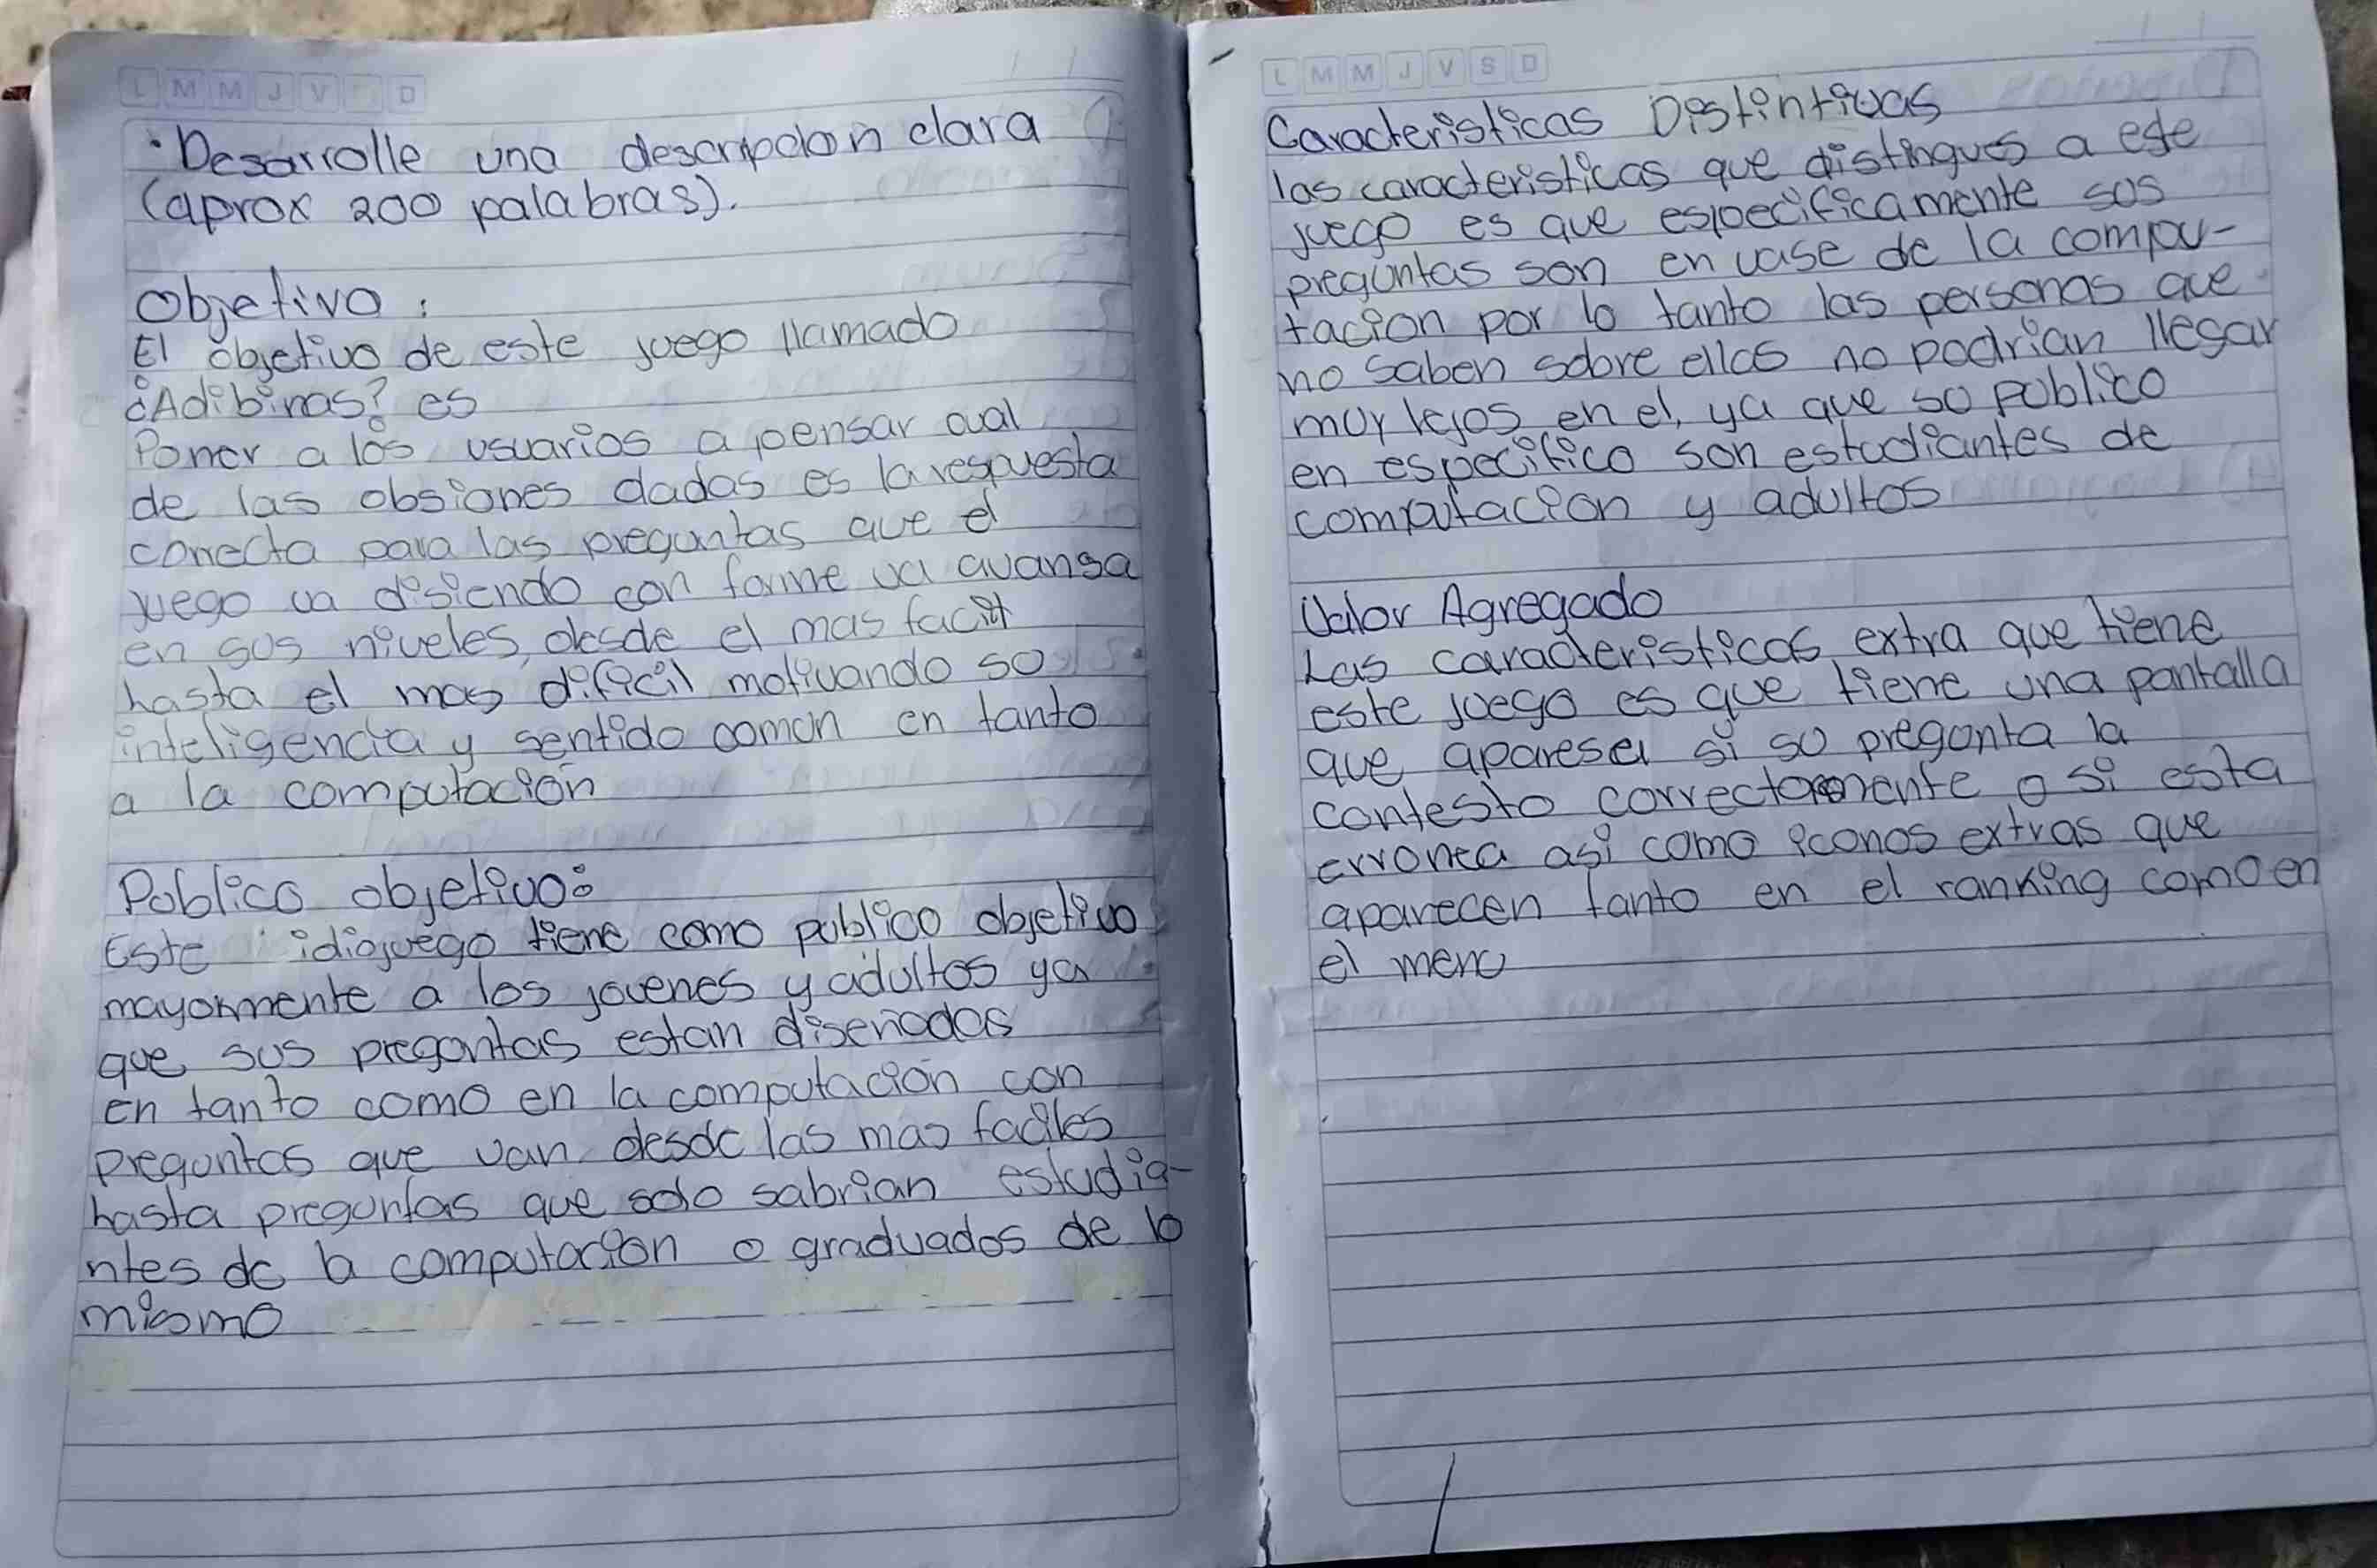 L M M J V D
• Desarrolle una descripcion clara
(aprox 200 palabras).
Objetivo:
El objetivo de este juego llamado
¿Adibinas? es
Poner a los usuarios a pensar cual
de las obsiones dadas es la respuesta
correcta para las preguntas que el
juego va disiendo con forme va avansa
en sus niveles, desde el mas facil
hasta el mas dificil motivando su
inteligencia y sentido comun en tanto
a la computación
Publico objetivo:
Este idiojuego tiene como publico objetivo
mayormente a los jovenes y adultos ya
que sus preguntas estan diseñadas
en tanto como en la computación con
preguntas que van desde las mas faciles
hasta preguntas que solo sabrian estudia-
ntes de la computacion o graduados de lo
mismo
L M M J V S D
Caracteristicas Distintivas
las caracteristicas que distingues a este
juego es que especificamente sus
preguntas son en vase de la compu-
tacion por lo tanto las personas que
no saben sobre ellas no podrian llegar
muy lejos en el, ya que su publico
en especifico son estudiantes de
computacion y adultos
Valor Agregado
Las caracteristicas extra que tiene
este juego es que tiene una pantalla
que aparese si su pregunta la
contesto correctamente o si esta
erronea asi como iconos extras que
aparecen tanto en el ranking como en
el menu